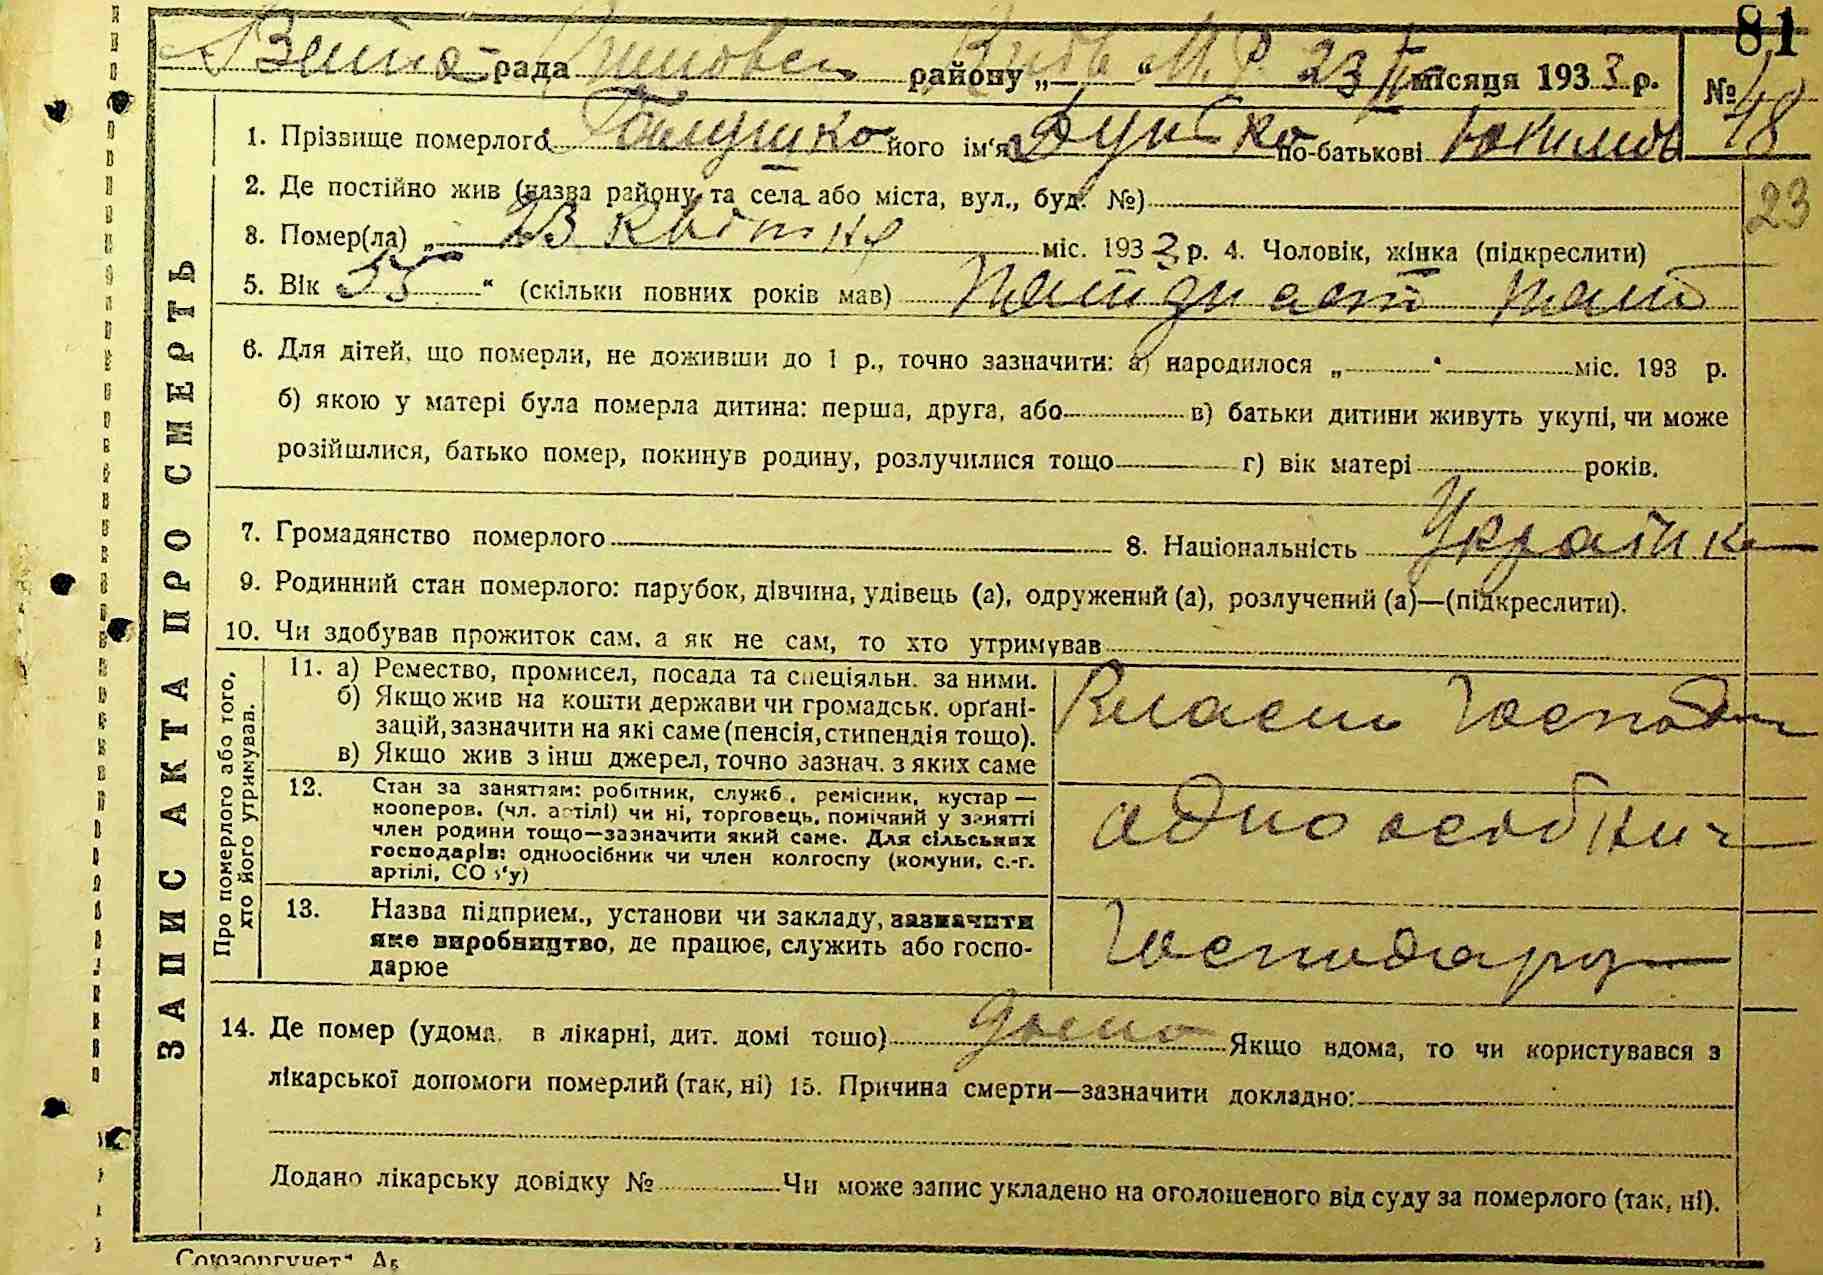 81
рада району „ “ 23 місяця 1933 р. № 48
1. Прізвище померлого Галушко його ім'я по-батькові
2. Де постійно жив (назва району та села або міста, вул., буд. №)
23
3. Помер(ла) „ 23 квітня міс. 1933 р. 4. Чоловік, жінка (підкреслити)
5. Вік 55 “ (скільки повних років мав)
6. Для дітей, що померли, не доживши до 1 р., точно зазначити: а) народилося „ “ міс. 193 р.
б) якою у матері була померла дитина: перша, друга, або в) батьки дитини живуть укупі, чи може
розійшлися, батько помер, покинув родину, розлучилися тощо г) вік матері років.
7. Громадянство померлого 8. Національність Україн
9. Родинний стан померлого: парубок, дівчина, удівець (а), одружений (а), розлучений (а)—(підкреслити).
10. Чи здобував прожиток сам, а як не сам, то хто утримував
ЗАПИС АКТА ПРО СМЕРТЬ
Про померлого або того,
хто його утримував.
11. а) Ремество, промисел, посада та спеціяльн. за ними.
б) Якщо жив на кошти держави чи громадськ. орґані-
зацій, зазначити на які саме (пенсія, стипендія тощо).
в) Якщо жив з інш джерел, точно зазнач. з яких саме
Власни Господ
12. Стан за заняттям: робітник, служб., ремісник, кустар—
кооперов. (чл. артілі) чи ні, торговець, помічний у занятті
член родини тощо—зазначити який саме. Для сільських
господарів: одноосібник чи член колгоспу (комуни, с.-г.
артілі, СОЗ'у)
одноосібнич
13. Назва підприєм., установи чи закладу, зазначити
яке виробництво, де працює, служить або госпо-
дарює
Господарю
14. Де помер (удома, в лікарні, дит. домі тощо) дома Якщо вдома, то чи користувався з
лікарської допомоги померлий (так, ні) 15. Причина смерти—зазначити докладно:
Додано лікарську довідку № Чи може запис укладено на оголошеного від суду за померлого (так, ні).
Союзоргучет"